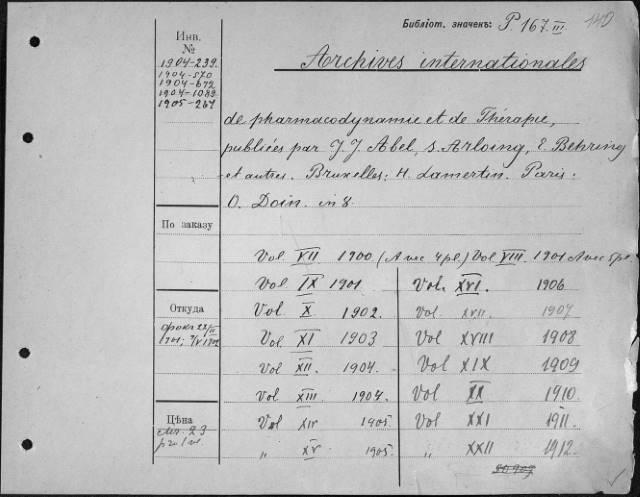 Библіот. значекъ: P. 167.III. 140
Инв.
№
1904-239.
1904-570
1904-672
1904-1089
1905-267
Archives internationales
de pharmacodynamie et de Thérapie,
publiées par J. J. Abel, S. Arloing, E. Behring
et autres. Bruxelles: H. Lamertin. Paris:
O. Doin. in 8.
По заказу
Vol VII 1900 (Avec 4 pl.) Vol VIII. 1901 Avec 5 pl.
Vol IX 1901. Vol. XVI. 1906
Откуда
Vol X 1902. Vol XVII. 1907
Vol XI 1903 Vol XVIII 1908
Vol XII. 1904. Vol XIX 1909
Vol XIII 1904. Vol XX 1910.
Цѣна
Vol XIV 1905. Vol XXI 1911.
„ XV 1905. „ XXII 1912.